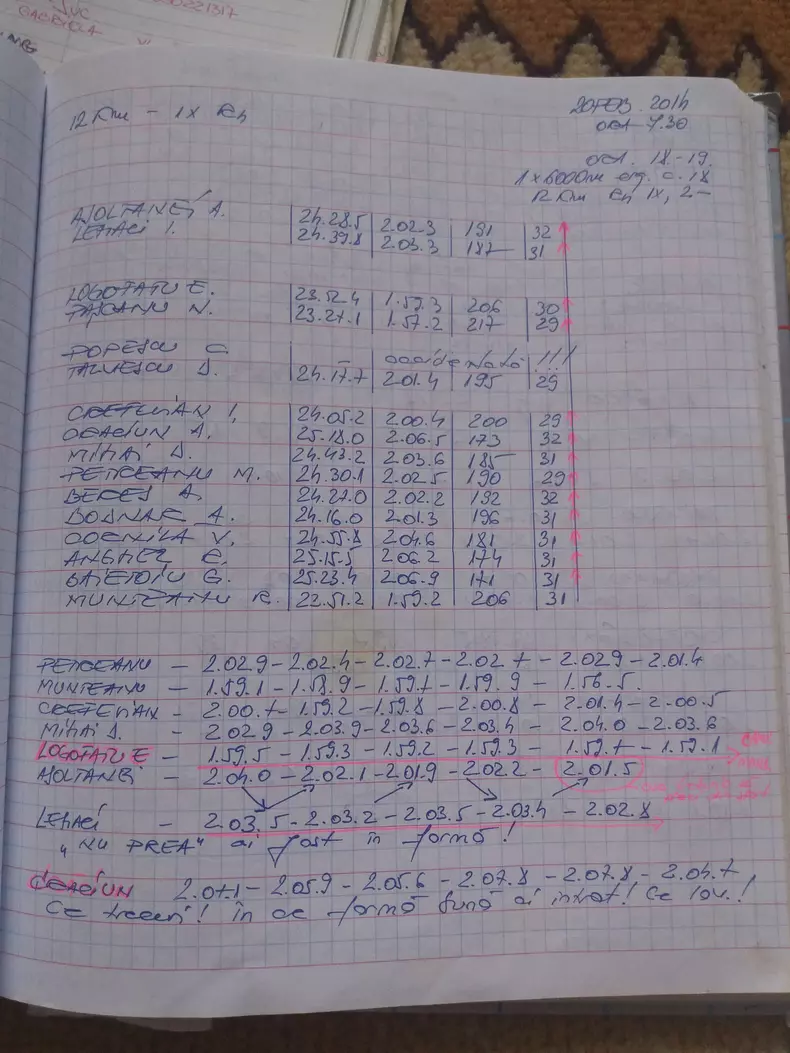 GABRIELA
12 Km - 1x
20 FEB. 2014
ora 7.30
ora. 18-19.
1x6000m erg. c. 18
12 Km 1x, 2-
AJOLTANEI A. 24.28.5 2.02.3 191 32
LEHACI I. 24.39.8 2.03.3 187 31
LOGOFATU E. 23.52.4 1.59.3 206 30
PAJCANU N. 23.27.1 1.57.2 217 29
POPESCU C - accidentată !!!
D. 24.17.7 2.01.4 195 29
CRETCHIAN I. 24.05.2 2.00.4 200 29
CRACIUN A. 25.18.0 2.06.5 173 32
MIHAI D. 24.43.2 2.03.6 185 31
PETICEANU M. 24.30.1 2.02.5 190 29
BERES A. 24.27.0 2.02.2 192 32
BOSNAR A. 24.16.0 2.01.3 196 31
V. 24.55.8 2.04.6 181 31
ANGHEL E. 25.15.5 2.06.2 174 31
G. 25.23.4 2.06.9 171 31
MUNTEANU R. 22.51.2 1.59.2 206 31
PETICEANU - 2.02.9 - 2.02.4 - 2.02.7 - 2.02.7 - 2.02.9 - 2.01.4
MUNTEANU - 1.59.1 - 1.58.9 - 1.59.7 - 1.59.9 - 1.56.5.
CRETCHIAN - 2.00.7 - 1.59.2 - 1.59.8 - 2.00.8 - 2.01.4 - 2.00.5
MIHAI D. - 2.02.9 - 2.03.9 - 2.03.6 - 2.03.4 - 2.04.0 - 2.03.6
LOGOFATU E - 1.59.5 - 1.59.3 - 1.59.2 - 1.59.3 - 1.59.7 - 1.59.1
AJOLTANEI - 2.04.0 - 2.02.1 - 2.01.9 - 2.02.2 - 2.01.5
LEHACI - 2.03.5 - 2.03.2 - 2.03.5 - 2.03.4 - 2.02.8
"NU PREA" ai fost în formă!
CRACIUN 2.07.1 - 2.05.9 - 2.05.6 - 2.07.8 - 2.07.8 - 2.04.7
Ce treceri! în ce formă bună ai intrat! Ce lov.!